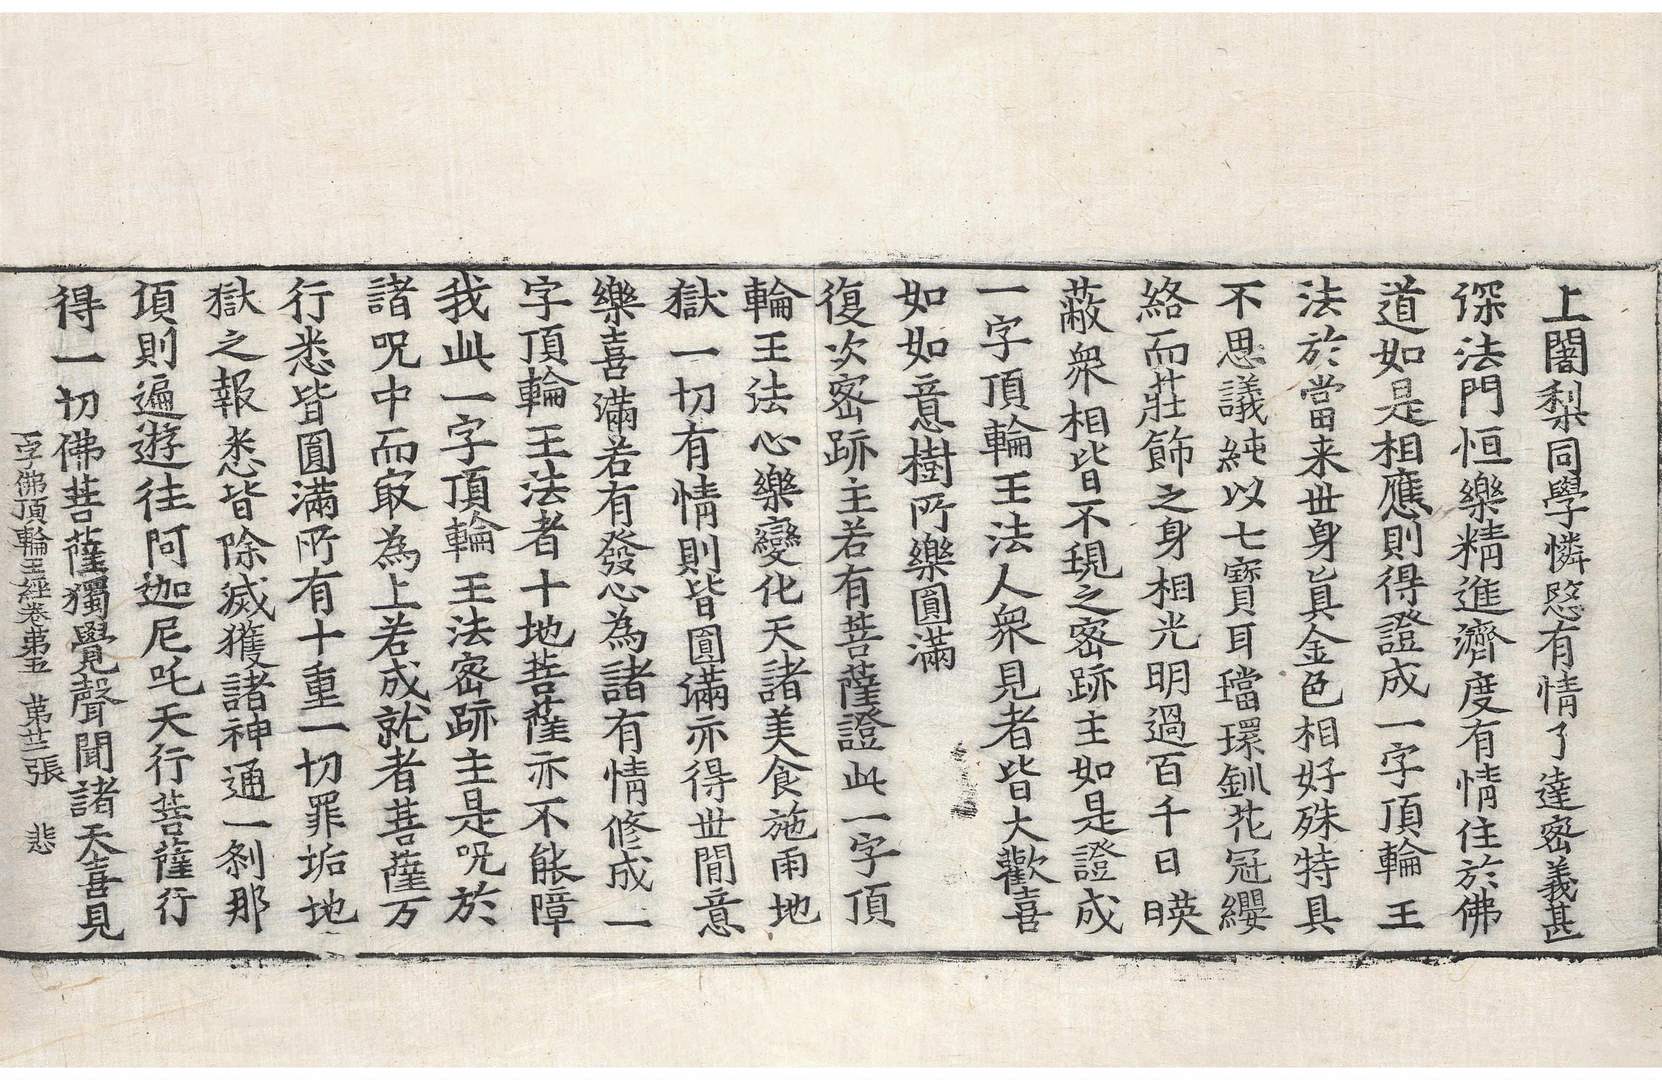 上闍梨同學憐愍有情了達密義甚
深法門恒樂精進濟度有情住於佛
道如是相應則得證成一字頂輪王
法於當来世身真金色相好殊特具
不思議純以七寶耳璫環釧花冠纓
絡而莊飾之身相光明過百千日暎
蔽衆相皆不現之密跡主如是證成
一字頂輪王法人衆見者皆大歡喜
如如意樹所樂圓滿
復次密跡主若有菩薩證此一字頂
輪王法心樂變化天諸美食施雨地
獄一切有情則皆圓滿亦得世間意
樂喜滿若有發心為諸有情修成一
字頂輪王法者十地菩薩亦不能障
我此一字頂輪王法密跡主是呪於
諸呪中而冣為上若成就者菩薩万
行悉皆圓滿所有十重一切罪垢地
獄之報悉皆除滅獲諸神通一剎那
頃則遍遊往阿迦尼吒天行菩薩行
得一切佛菩薩獨覺聲聞諸天喜見
一字佛頂輪王經卷第五　第廿二張　悲